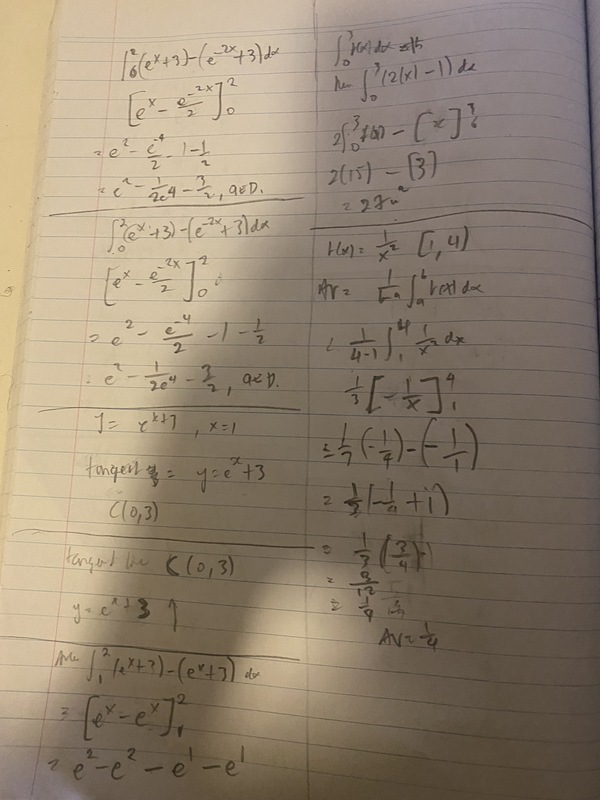 ∫₀² (eˣ+3)−(e⁻²ˣ+3)dx
[eˣ − e⁻²ˣ/2]₀²
= e² − e⁻⁴/2 − 1 − 1/2
= e² − 1/2e⁴ − 3/2, QED.
∫₀² (eˣ+3)−(e⁻²ˣ+3)dx
[eˣ − e⁻²ˣ/2]₀²
= e² − e⁻⁴/2 − 1 − 1/2
= e² − 1/2e⁴ − 3/2, QED.
, x=1
tangent = y=eˣ+3
C(0,3)
tangent line C(0,3)
y=eˣ+3
∫₁² (eˣ+3)−(eˣ+3) dx
= [eˣ−eˣ]₁²
= e²−e²−e¹−e¹
∫₀³ f(x)dx
∫₀³ (2(x)−1)dx
2∫₀³ f(x) − [x]³₀
2(15) − [3]
= 27u²
f(x)= 1/x² [1,4)
AV= ∫ₐᵇ f(x)dx
1/4−1 ∫₁⁴ 1/x² dx
1/3 [−1/x]₁⁴
(−1/4)−(−1/1)
= 1/3 (−1/4 + 1)
= 1/3 (3/4)
= 3/12
= 1/4
AV=1/4